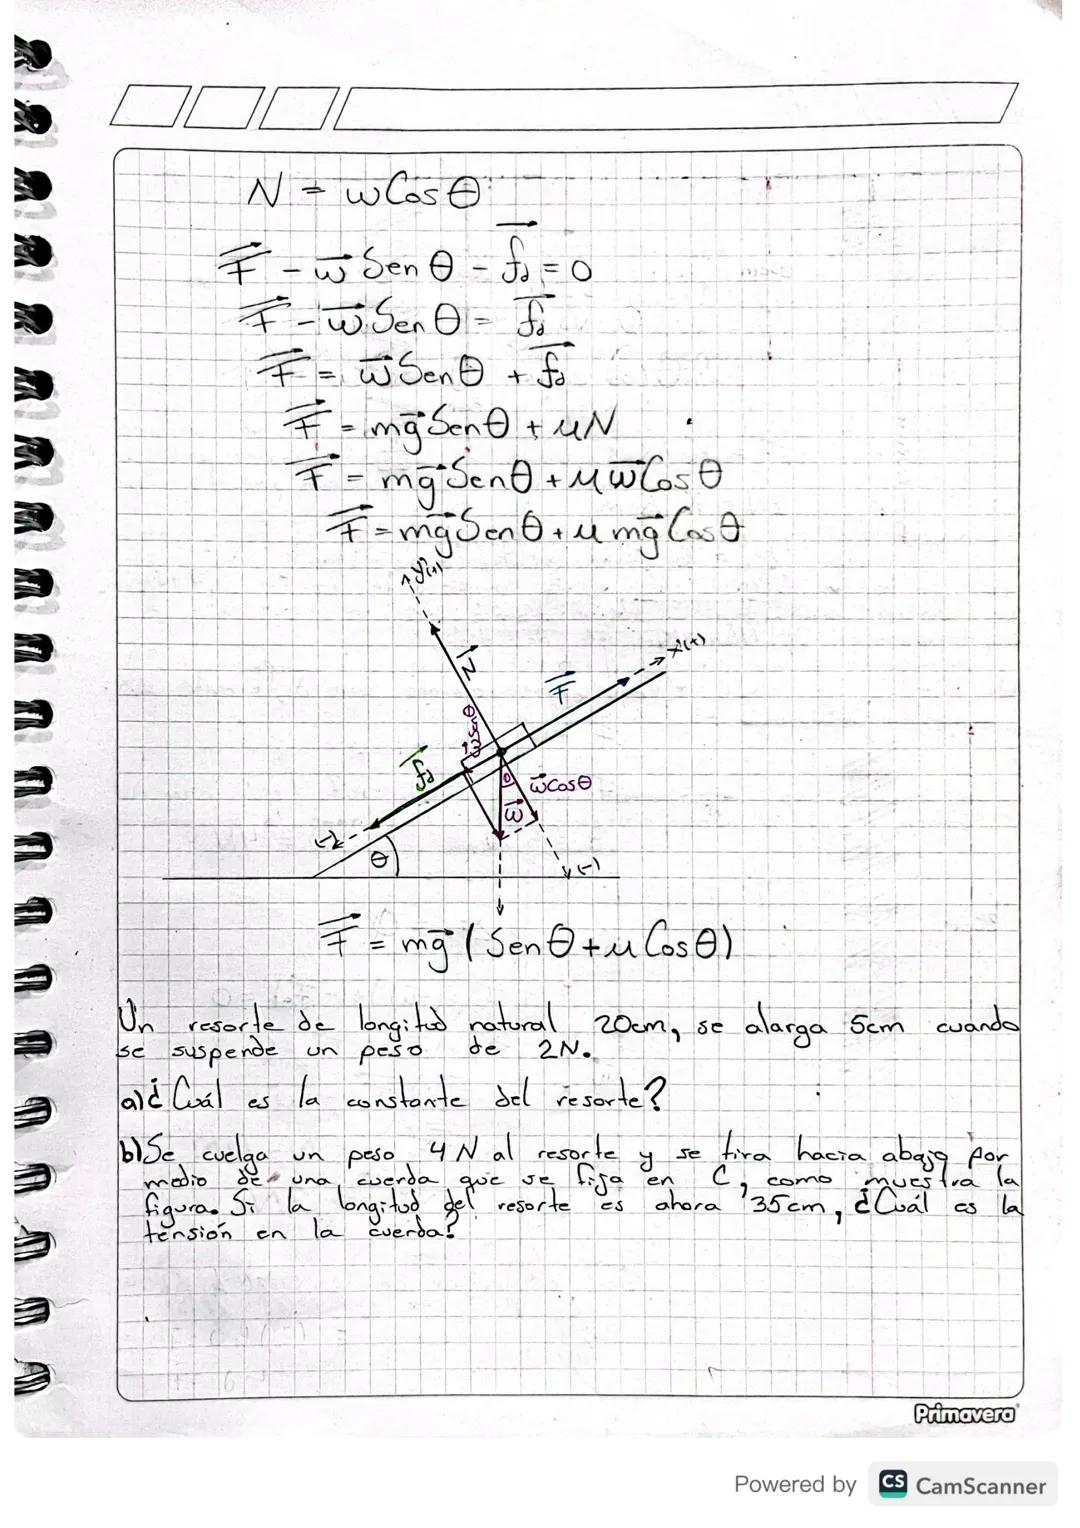 N = ωCosθ
F⃗ - ω⃗ Sen θ - f⃗d = 0
F⃗ - ω⃗ Sen θ = f⃗d
F⃗ = ω⃗ Sen θ + f⃗d
F⃗ = mg⃗ Sen θ + μN
F⃗ = mg⃗ Sen θ + μ ω⃗ Cos θ
F⃗ = mg⃗ Sen θ + μ mg⃗ Cos θ
y(+)
N⃗
x(+)
F⃗
ω⃗senθ
f⃗d
θ
ω⃗Cosθ
ω⃗
(-)
θ
(-)
F⃗ = mg⃗ (Sen θ + μ Cos θ)
Un resorte de longitud natural 20cm, se alarga 5cm cuando
se suspende un peso de 2N.
a)¿Cuál es la constante del resorte?
b)Se cuelga un peso 4N al resorte y se tira hacia abajo por
medio de una cuerda que se fija en C, como muestra la
figura. Si la longitud del resorte es ahora 35cm, ¿Cuál es la
tensión en la cuerda?
Primavera
Powered by CS CamScanner